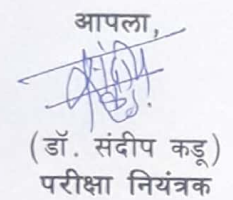 आपला,
(डॉ. संदीप कडू)
परीक्षा नियंत्रक